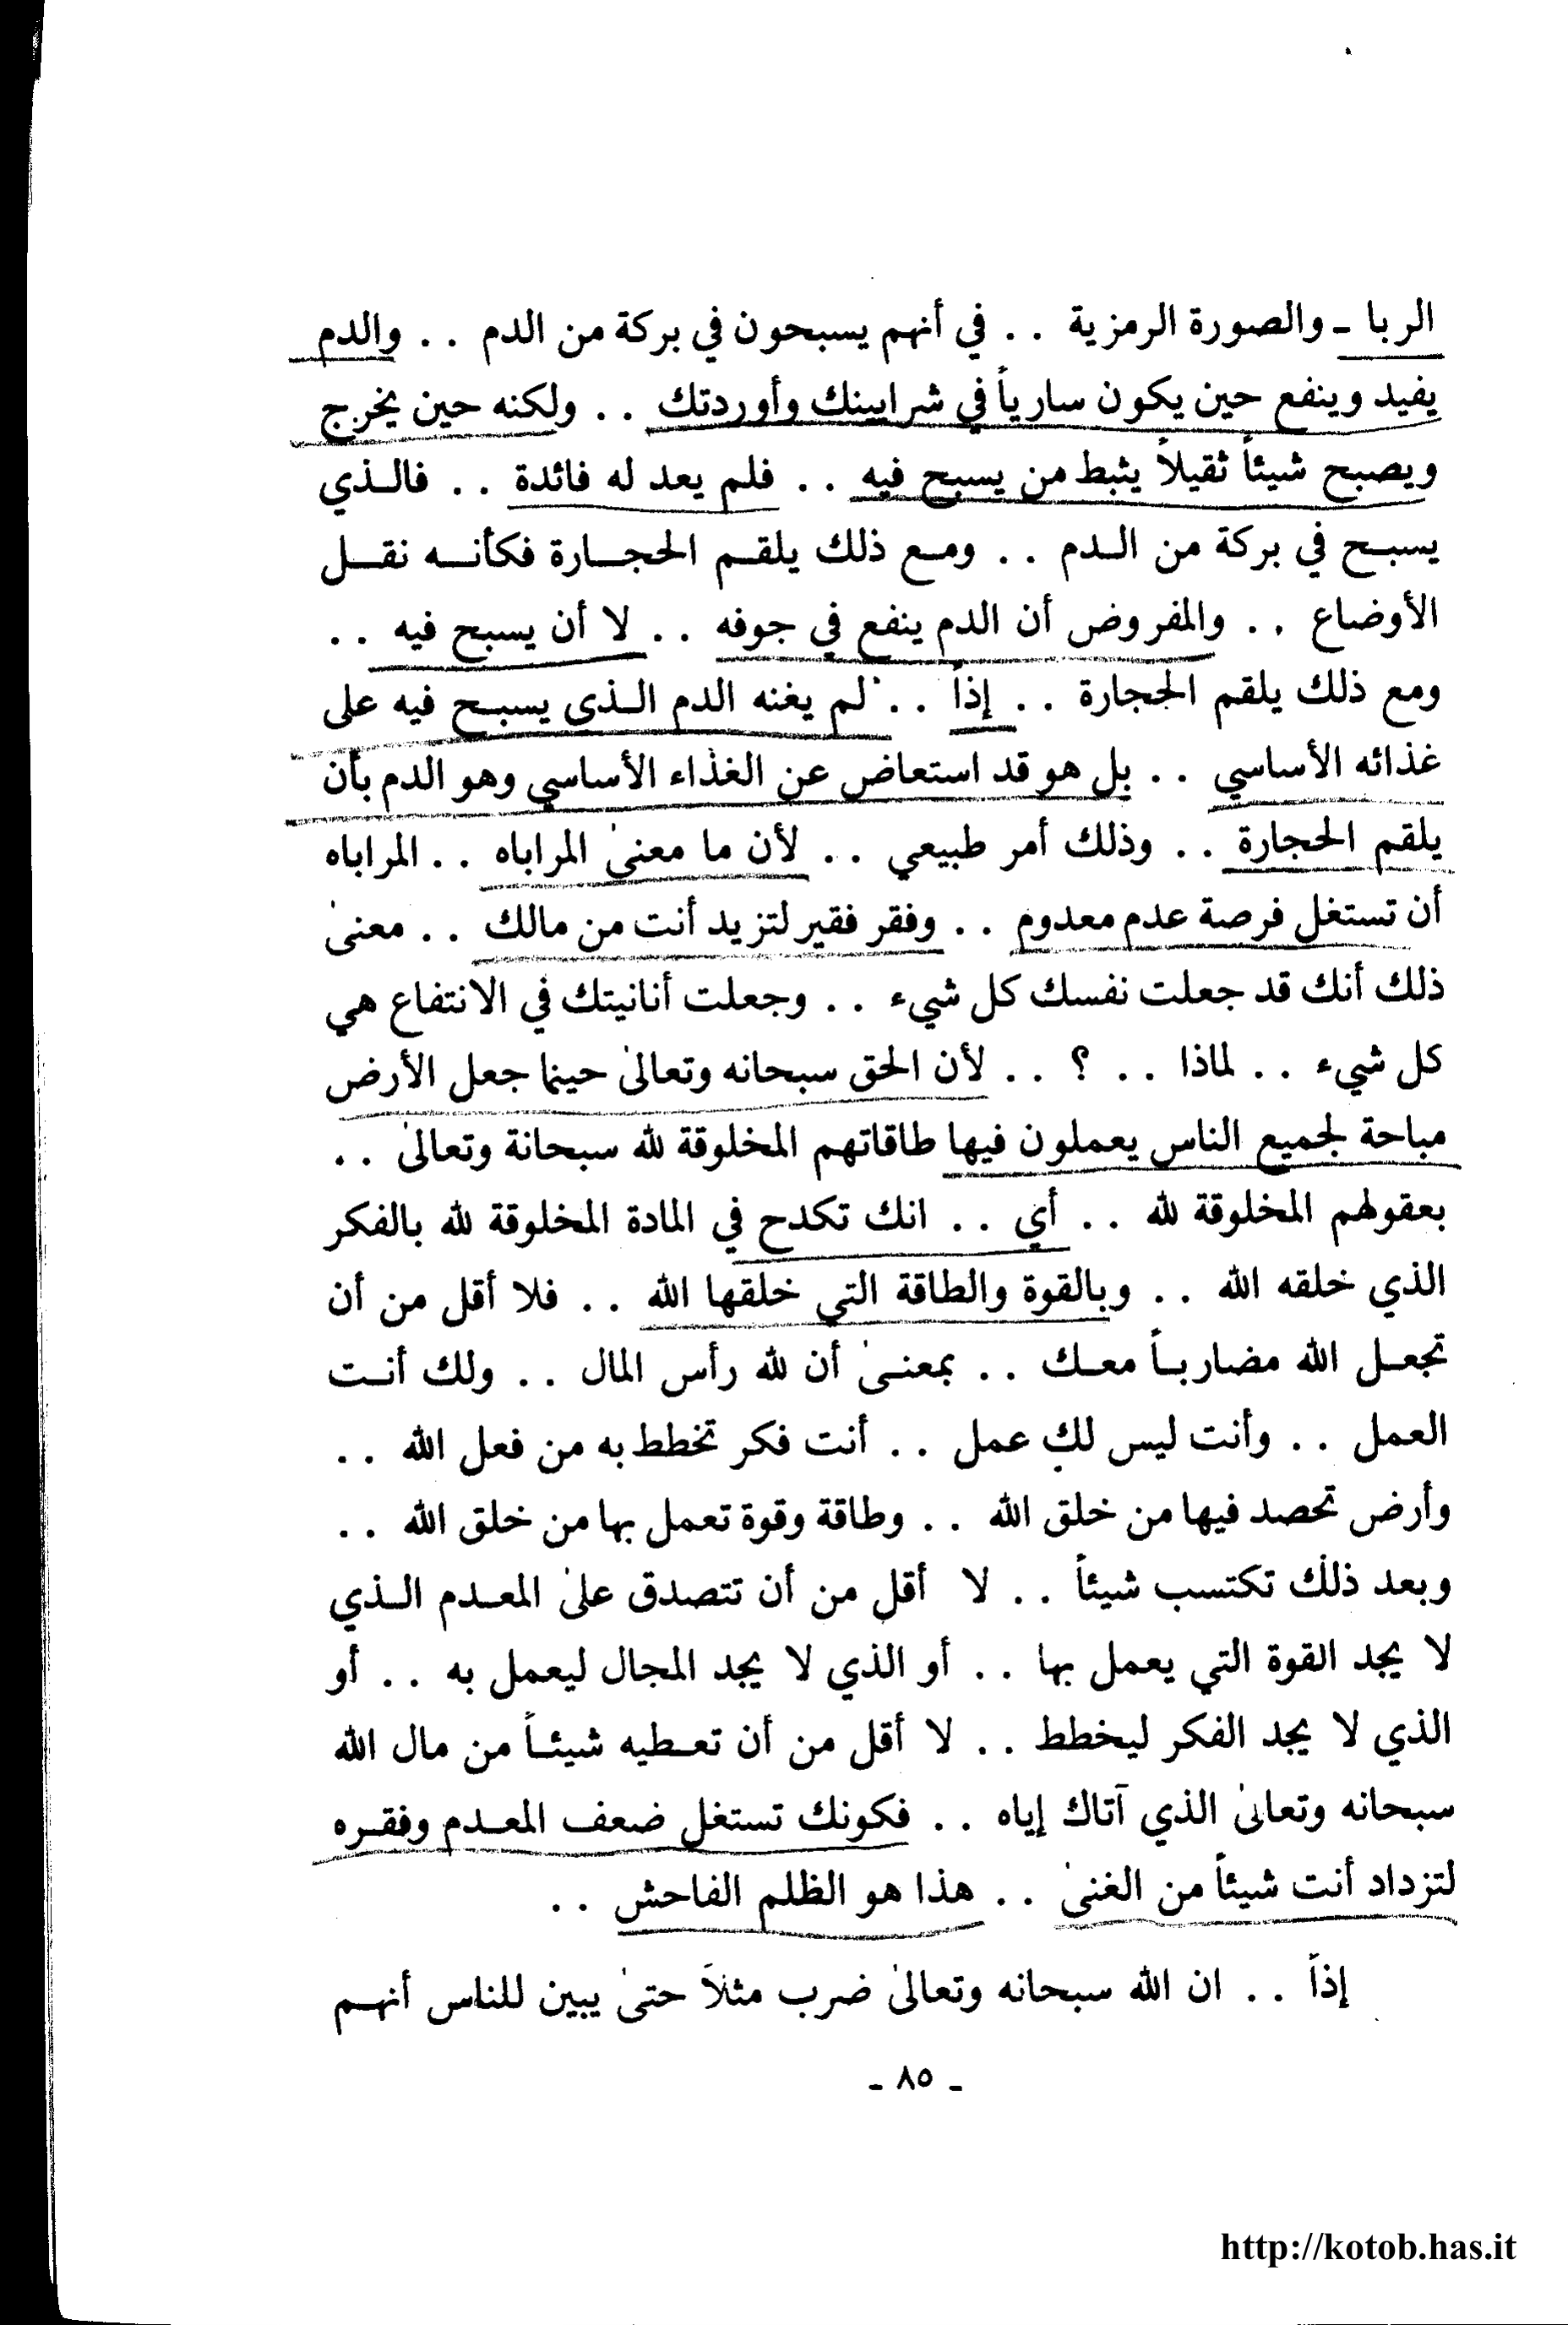 الربا - والصورة الرمزية . . في أنهم يسبحون في بركة من الدم . . والدم
يفيد وينفع حين يكون سارياً في شرايينك وأوردتك . . ولكنه حين يخرج
ويصبح شيئاً ثقيلاً يثبط من يسبح فيه . . فلم يعد له فائدة . . فالـذي
يسبـح في بركة من الـدم . . ومـع ذلك يلقـم الحجـارة فكأنـه نقـل
الأوضاع . . والمفروض أن الدم ينفع في جوفه . . لا أن يسبح فيه . .
ومع ذلك يلقم الحجارة . . إذاً . . لم يغنه الدم الـذي يسبـح فيه على
غذائه الأساسي . . بل هو قد استعاض عن الغذاء الأساسي وهو الدم بأن
يلقم الحجارة . . وذلك أمر طبيعي . . لأن ما معنىٰ المراباه . . المراباه
أن تستغل فرصة عدم معدوم . . وفقر فقير لتزيد أنت من مالك . . معنىٰ
ذلك أنك قد جعلت نفسك كل شيء . . وجعلت أنانيتك في الانتفاع هي
كل شيء . . لماذا . . ؟ . . لأن الحق سبحانه وتعالىٰ حينما جعل الأرض
مباحة لجميع الناس يعملون فيها طاقاتهم المخلوقة لله سبحانة وتعالىٰ . .
بعقولهم المخلوقة لله . . أي . . انك تكدح في المادة المخلوقة لله بالفكر
الذي خلقه الله . . وبالقوة والطاقة التي خلقها الله . . فلا أقل من أن
تجعـل الله مضاربـاً معـك . . بمعنـىٰ أن لله رأس المال . . ولك أنـت
العمل . . وأنت ليس لك عمل . . أنت فكر تخطط به من فعل الله . .
وأرض تحصد فيها من خلق الله . . وطاقة وقوة تعمل بها من خلق الله . .
وبعد ذلك تكتسب شيئاً . . لا أقل من أن تتصدق علىٰ المعـدم الـذي
لا يجد القوة التي يعمل بها . . أو الذي لا يجد المجال ليعمل به . . أو
الذي لا يجد الفكر ليخطط . . لا أقل من أن تعـطيه شيئـاً من مال الله
سبحانه وتعالىٰ الذي آتاك إياه . . فكونك تستغل ضعف المعـدم وفقـره
لتزداد أنت شيئاً من الغنىٰ . . هذا هو الظلم الفاحش . .
إذاً . . ان الله سبحانه وتعالىٰ ضرب مثلاً حتىٰ يبين للناس أنهـم
- ٨٥ -
http://kotob.has.it